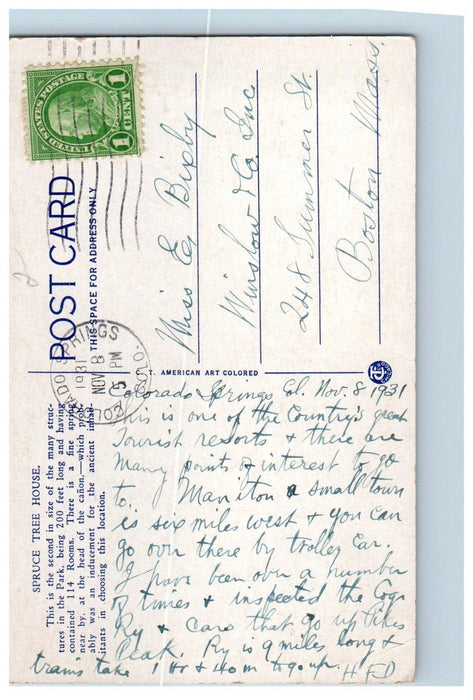 UNITED STATES POSTAGE
1 1
POST CARD
THIS SPACE FOR ADDRESS ONLY
COLORADO SPRINGS
COLO.
1931
NOV 8
5 PM
Miss E Bixby
Winslow & Co Inc
248 Summer St.
Boston Mass.
C. T. AMERICAN ART COLORED
SPRUCE TREE HOUSE.
This is the second in size of the many struc-
tures in the Park, being 200 feet long and having
contained 114 Rooms. There is a fine spring
near by, at the head of the cañon,—which prob-
ably was an inducement for the ancient inhab-
itants in choosing this location.
Colorado Springs Col. Nov. 8 1931
This is one of the Country's great
Tourist resorts & there are
many points of interest to go
to. Maniton a small town
is six miles west & you can
go over there by trolley car.
I have been over a number
of times & inspected the Cog
Ry & cars that go up Pikes
Peak. Ry is 9 miles long &
trains take 1 Hr & 40 m to go up. H F D